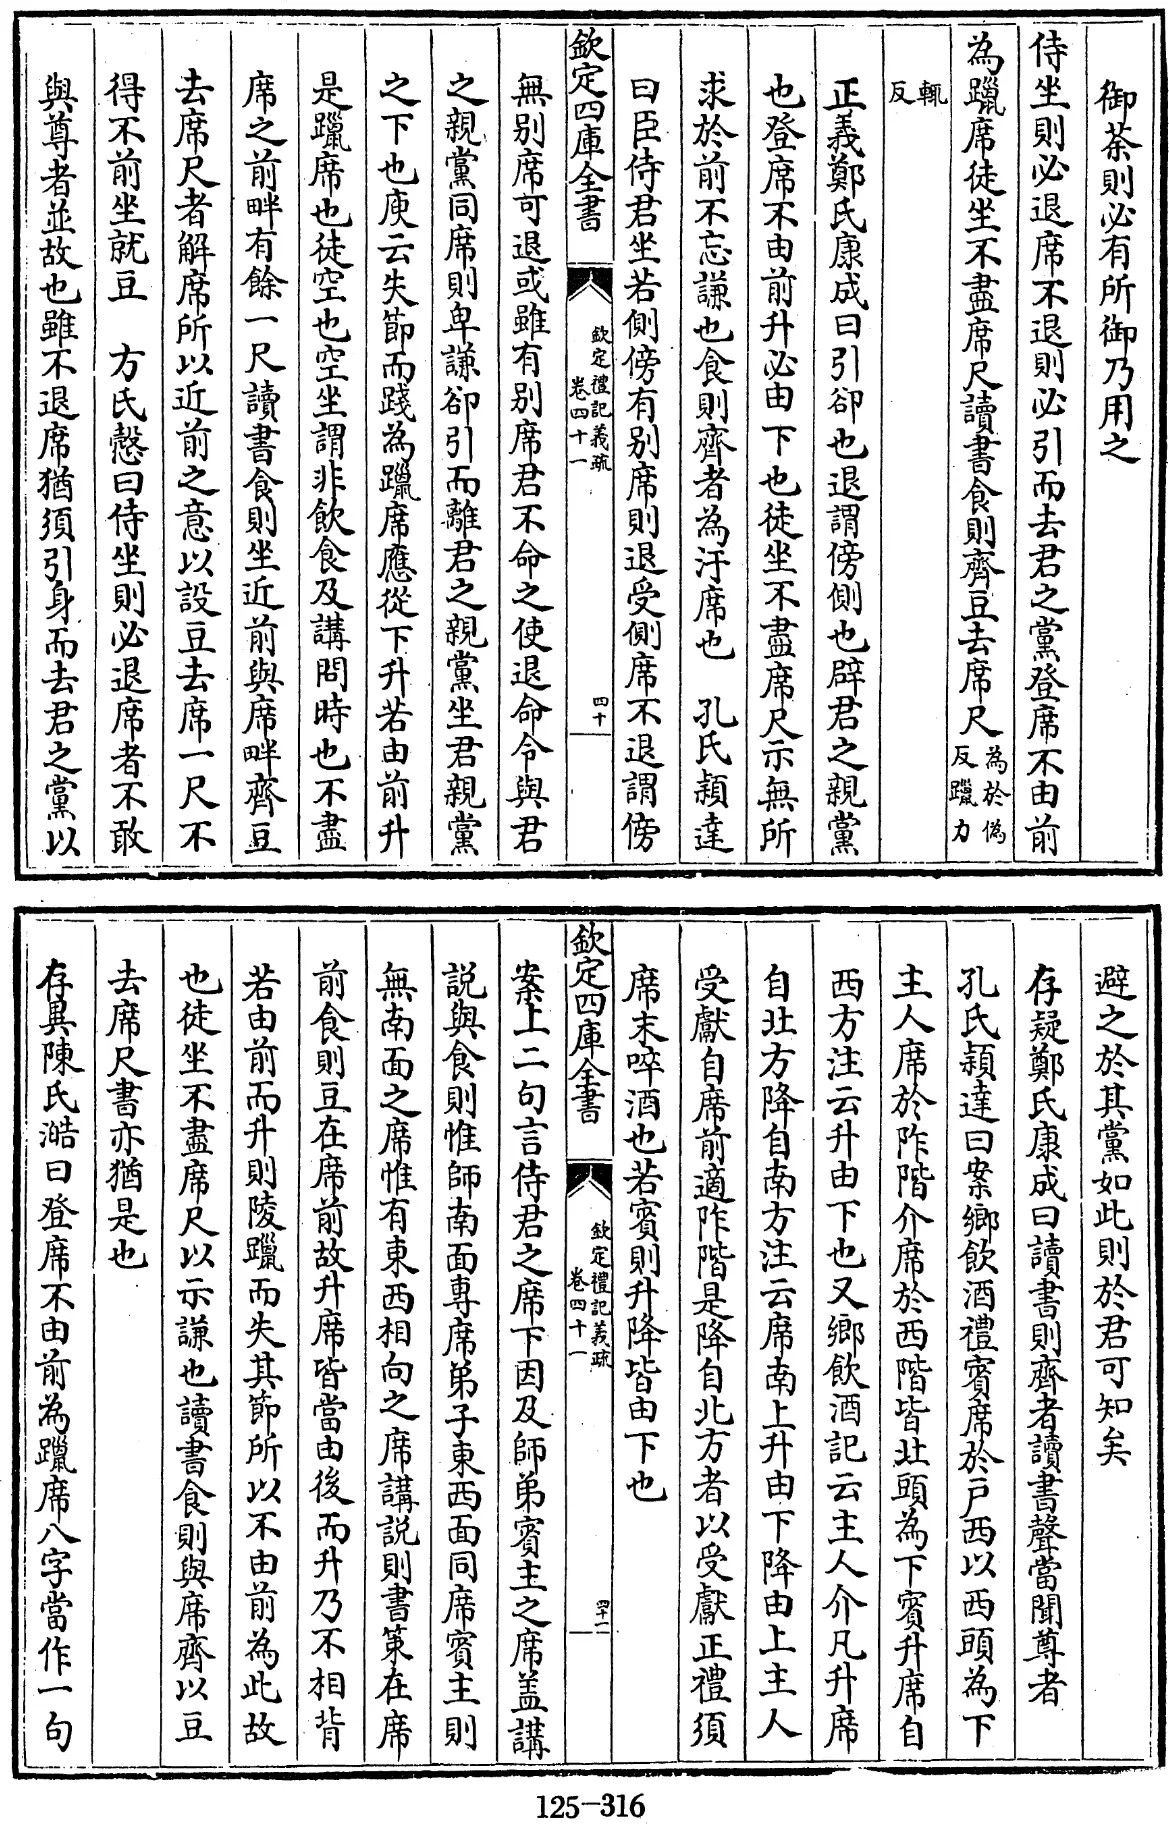 御荼則必有所御乃用之
侍坐則必退席不退則必引而去君之黨登席不由前
為躐席徒坐不盡席尺讀書食則齊豆去席尺為於偽反躐力
輒反
正義鄭氏康成曰引卻也退謂傍側也辟君之親黨
也登席不由前升必由下也徒坐不盡席尺示無所
求於前不忘謙也食則齊者為汙席也　孔氏穎達
曰臣侍君坐若側傍有別席則退受側席不退謂傍
欽定四庫全書
欽定禮記義疏
卷四十一
四十
無別席可退或雖有別席君不命之使退命令與君
之親黨同席則卑謙卻引而離君之親黨坐君親黨
之下也庾云失節而踐為躐席應從下升若由前升
是躐席也徒空也空坐謂非飲食及講問時也不盡
席之前畔有餘一尺讀書食則坐近前與席畔齊豆
去席尺者解席所以近前之意以設豆去席一尺不
得不前坐就豆　方氏慤曰侍坐則必退席者不敢
與尊者並故也雖不退席猶須引身而去君之黨以
避之於其黨如此則於君可知矣
存疑鄭氏康成曰讀書則齊者讀書聲當聞尊者
孔氏穎達曰案鄉飲酒禮賓席於戶西以西頭為下
主人席於阼階介席於西階皆北頭為下賓升席自
西方注云升由下也又鄉飲酒記云主人介凡升席
自北方降自南方注云席南上升由下降由上主人
受獻自席前適阼階是降自北方者以受獻正禮須
席末啐酒也若賓則升降皆由下也
欽定四庫全書
欽定禮記義疏
卷四十一
四十一
案上二句言侍君之席下因及師弟賓主之席蓋講
說與食則惟師南面專席弟子東西面同席賓主則
無南面之席惟有東西相向之席講說則書策在席
前食則豆在席前故升席皆當由後而升乃不相背
若由前而升則陵躐而失其節所以不由前為此故
也徒坐不盡席尺以示謙也讀書食則與席齊以豆
去席尺書亦猶是也
存異陳氏澔曰登席不由前為躐席八字當作一句
125-316